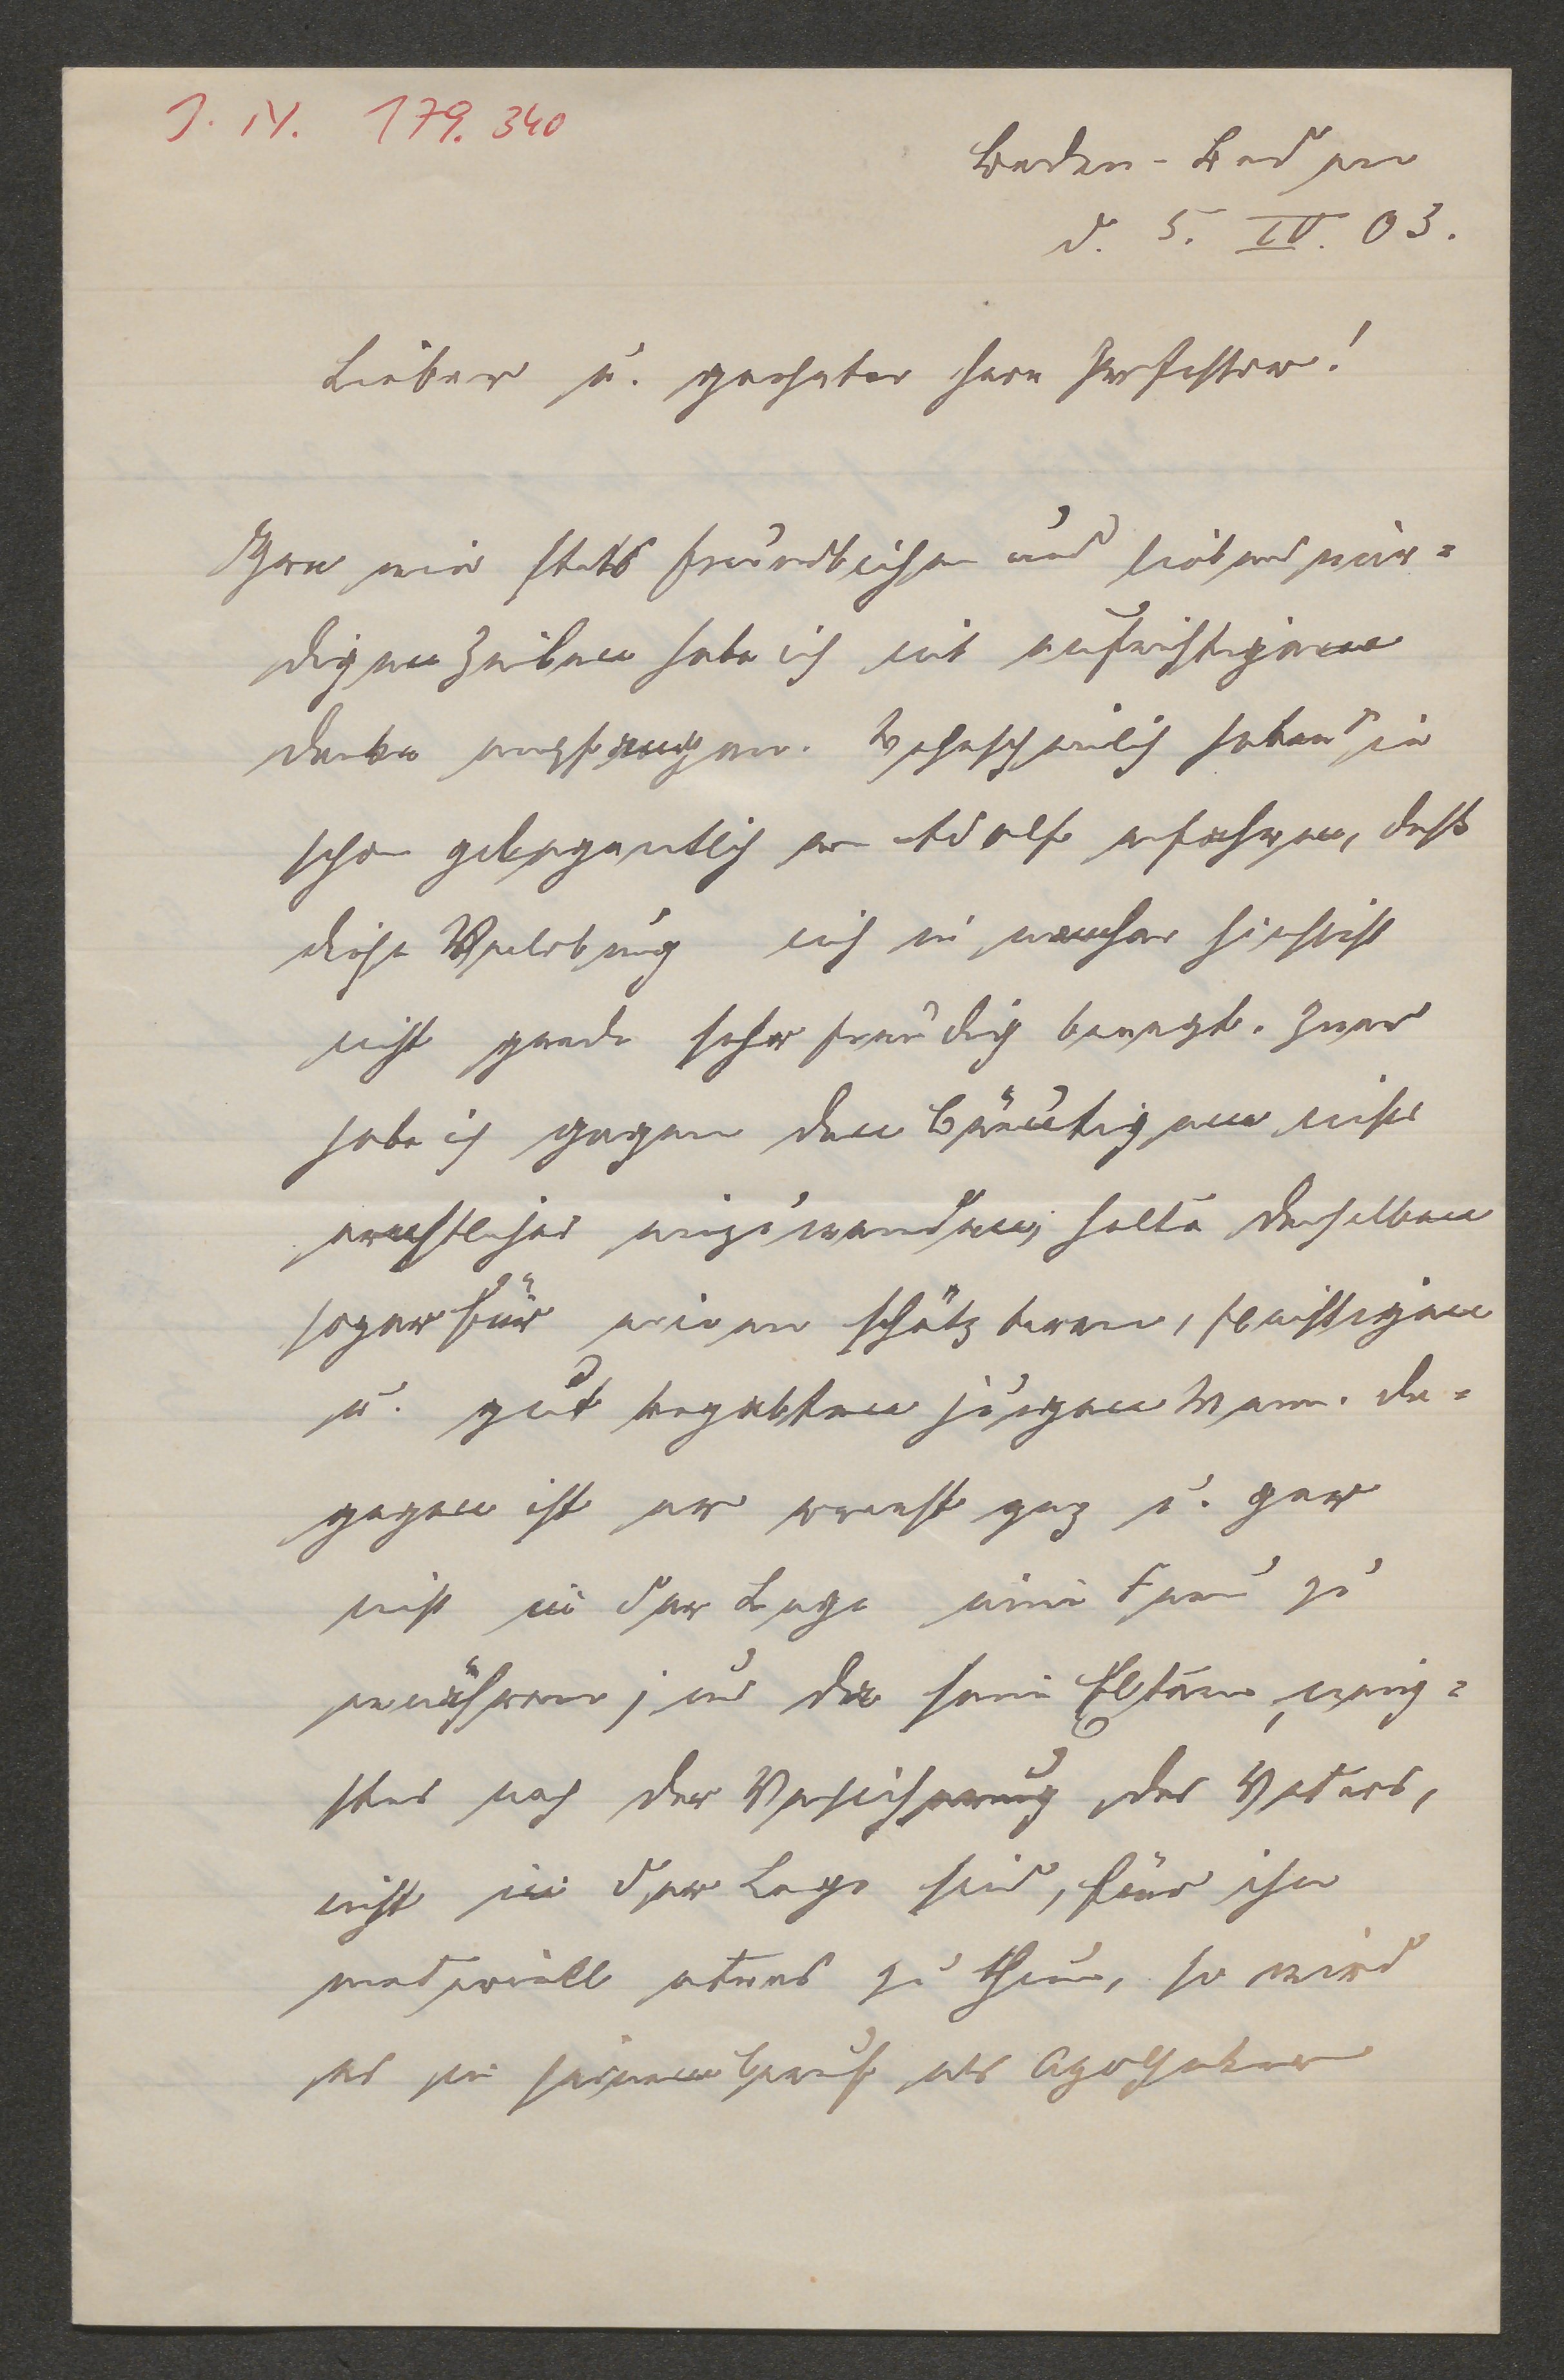 I. N. 179.340
Baden-Baden
d. 5. IV. 03.
Lieber u. geehrter Herr Professor!
Ihre mir stets freundlichen und liebenswür=
digen Zeilen habe ich mit aufrichtigem
Danke empfangen. Wahrscheinlich haben Sie
schon gelegentlich von Adolf erfahren, dass
diese Verlobung mich in mancher Hinsicht
nicht gerade sehr freudig bewegt. Zwar
habe ich gegen den Bräutigam nichts
ernstliches einzuwenden, halte denselben
sogar für einen schätzbaren, fleissigen
u. gut begabten jungen Mann. Da=
gegen ist er vorerst ganz u. gar
nicht in der Lage eine Frau zu
ernähren; und da seine Eltern, wenig=
stens nach der Versicherung des Vaters,
nicht in der Lage sind, für ihn
materiell etwas zu thun, so wird
es in seinem Beruf als Apotheker